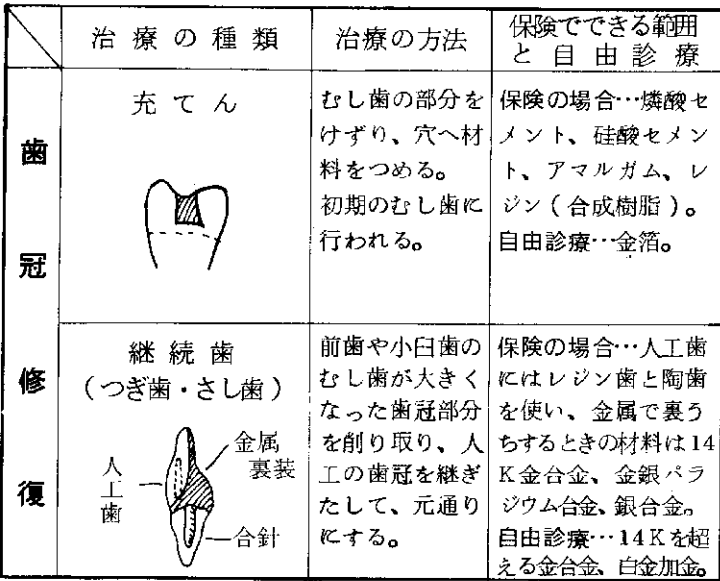 治療の種類
治療の方法
保険でできる範囲
と自由診療
歯冠修復
充てん
むし歯の部分を
けずり、穴へ材
料をつめる。
初期のむし歯に
行われる。
保険の場合…燐酸セ
メント、硅酸セメン
ト、アマルガム、レ
ジン(合成樹脂)。
自由診療…金箔。
継続歯
(つぎ歯・さし歯)
人工歯
金属
裏装
合針
前歯や小臼歯の
むし歯が大きく
なった歯冠部分
を削り取り、人
工の歯冠を継ぎ
たして、元通り
にする。
保険の場合…人工歯
にはレジン歯と陶歯
を使い、金属で裏う
ちするときの材料は14
K金合金、金銀パラ
ジウム合金、銀合金。
自由診療…14Kを超
える金合金、白金加金。